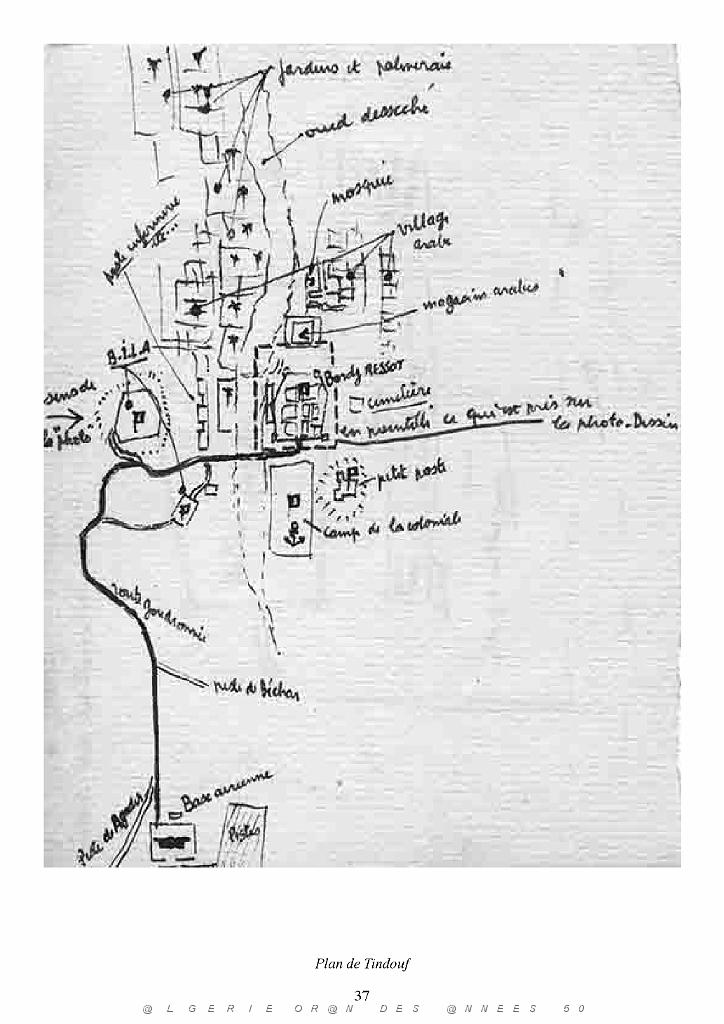 Jardins et palmeraie
oued desseché
mosquée
village
arabe
poste infirmerie
etc...
magasins arabes
B.I.L.A
Bordj RESSOT
cimetière
sens de
la photo
en pointillé ce qui est pris sur
la photo-Dessin
petit poste
camp de la coloniale
route goudronnée
piste de Béchar
Base aérienne
Piste d'Agadir
Pistes
Plan de Tindouf
37
@ L G E R I E O R @ N D E S @ N N E E S 5 0